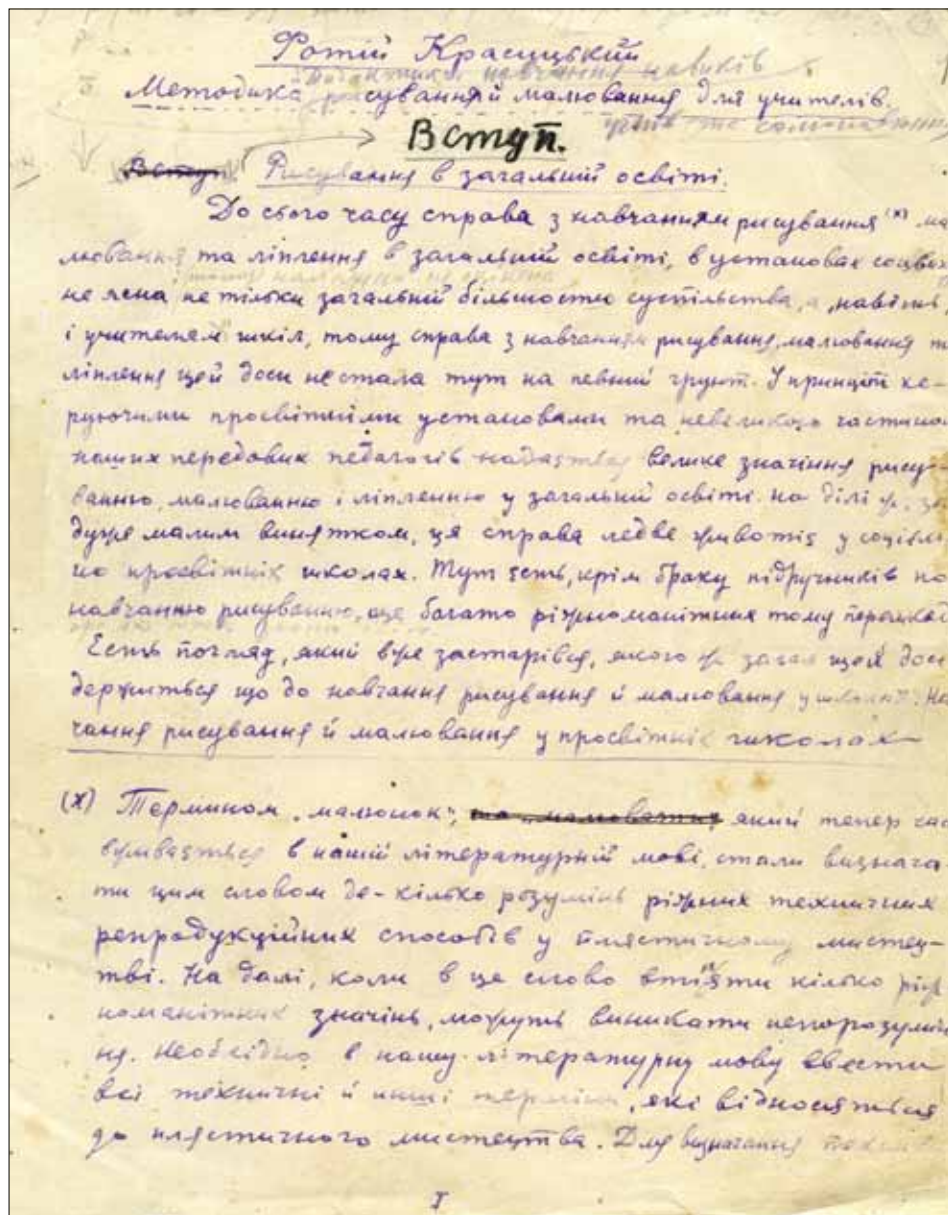 Фотій Красицький
Дидактика навчання навиків
Методика рисування й малювання для учителів.
Вступ.
Вступ Рисування в загальній освіті.
До сього часу справа з навчанням рисування (х) ма
лювання та ліплення в загальній освіті, в установах соцвих
не ясна не тільки загальній більшости суспільства, а навіть
і учителям шкіл, тому справа з навчанням рисування, малювання т
ліплення цей доси не стала тут на певний грунт. У принціпі ке-
руючими просвітніми установами та невеликою частиною
наших передових педагогів надається велике значіння рису-
ванню, малюванню і ліпленню у загальній освіті. на ділі ж, за
дуже малим винятком, ця справа ледве животіє у соціяль
но просвітніх школах. Тут єсть, крім браку підручників по
навчанню рисуванню, ще багато ріжноманітних тому перешкод
Єсть погляд, який вже застарівся, якого ж загал щей доси
держиться що до навчання рисування й малювання у школах: На
чання рисування й малювання у просвітніх школах
(х) Термином „малюнок", та „малювання" який тепер час
вумвається в нашій літературній мові, стали визнача
ти цим словом де-кілько розумінь ріжних техничних
репродукційних способів у плястичному мистец-
тві. На далі, коли в це слово втіляти кілько ріж
номанітних значінь, можуть виникати непорозумін
ня. Необхідно в нашу літературну мову ввести
всі техничні й инші терміни, які відносяться
до плястичного мистецтва. Для визначання
I